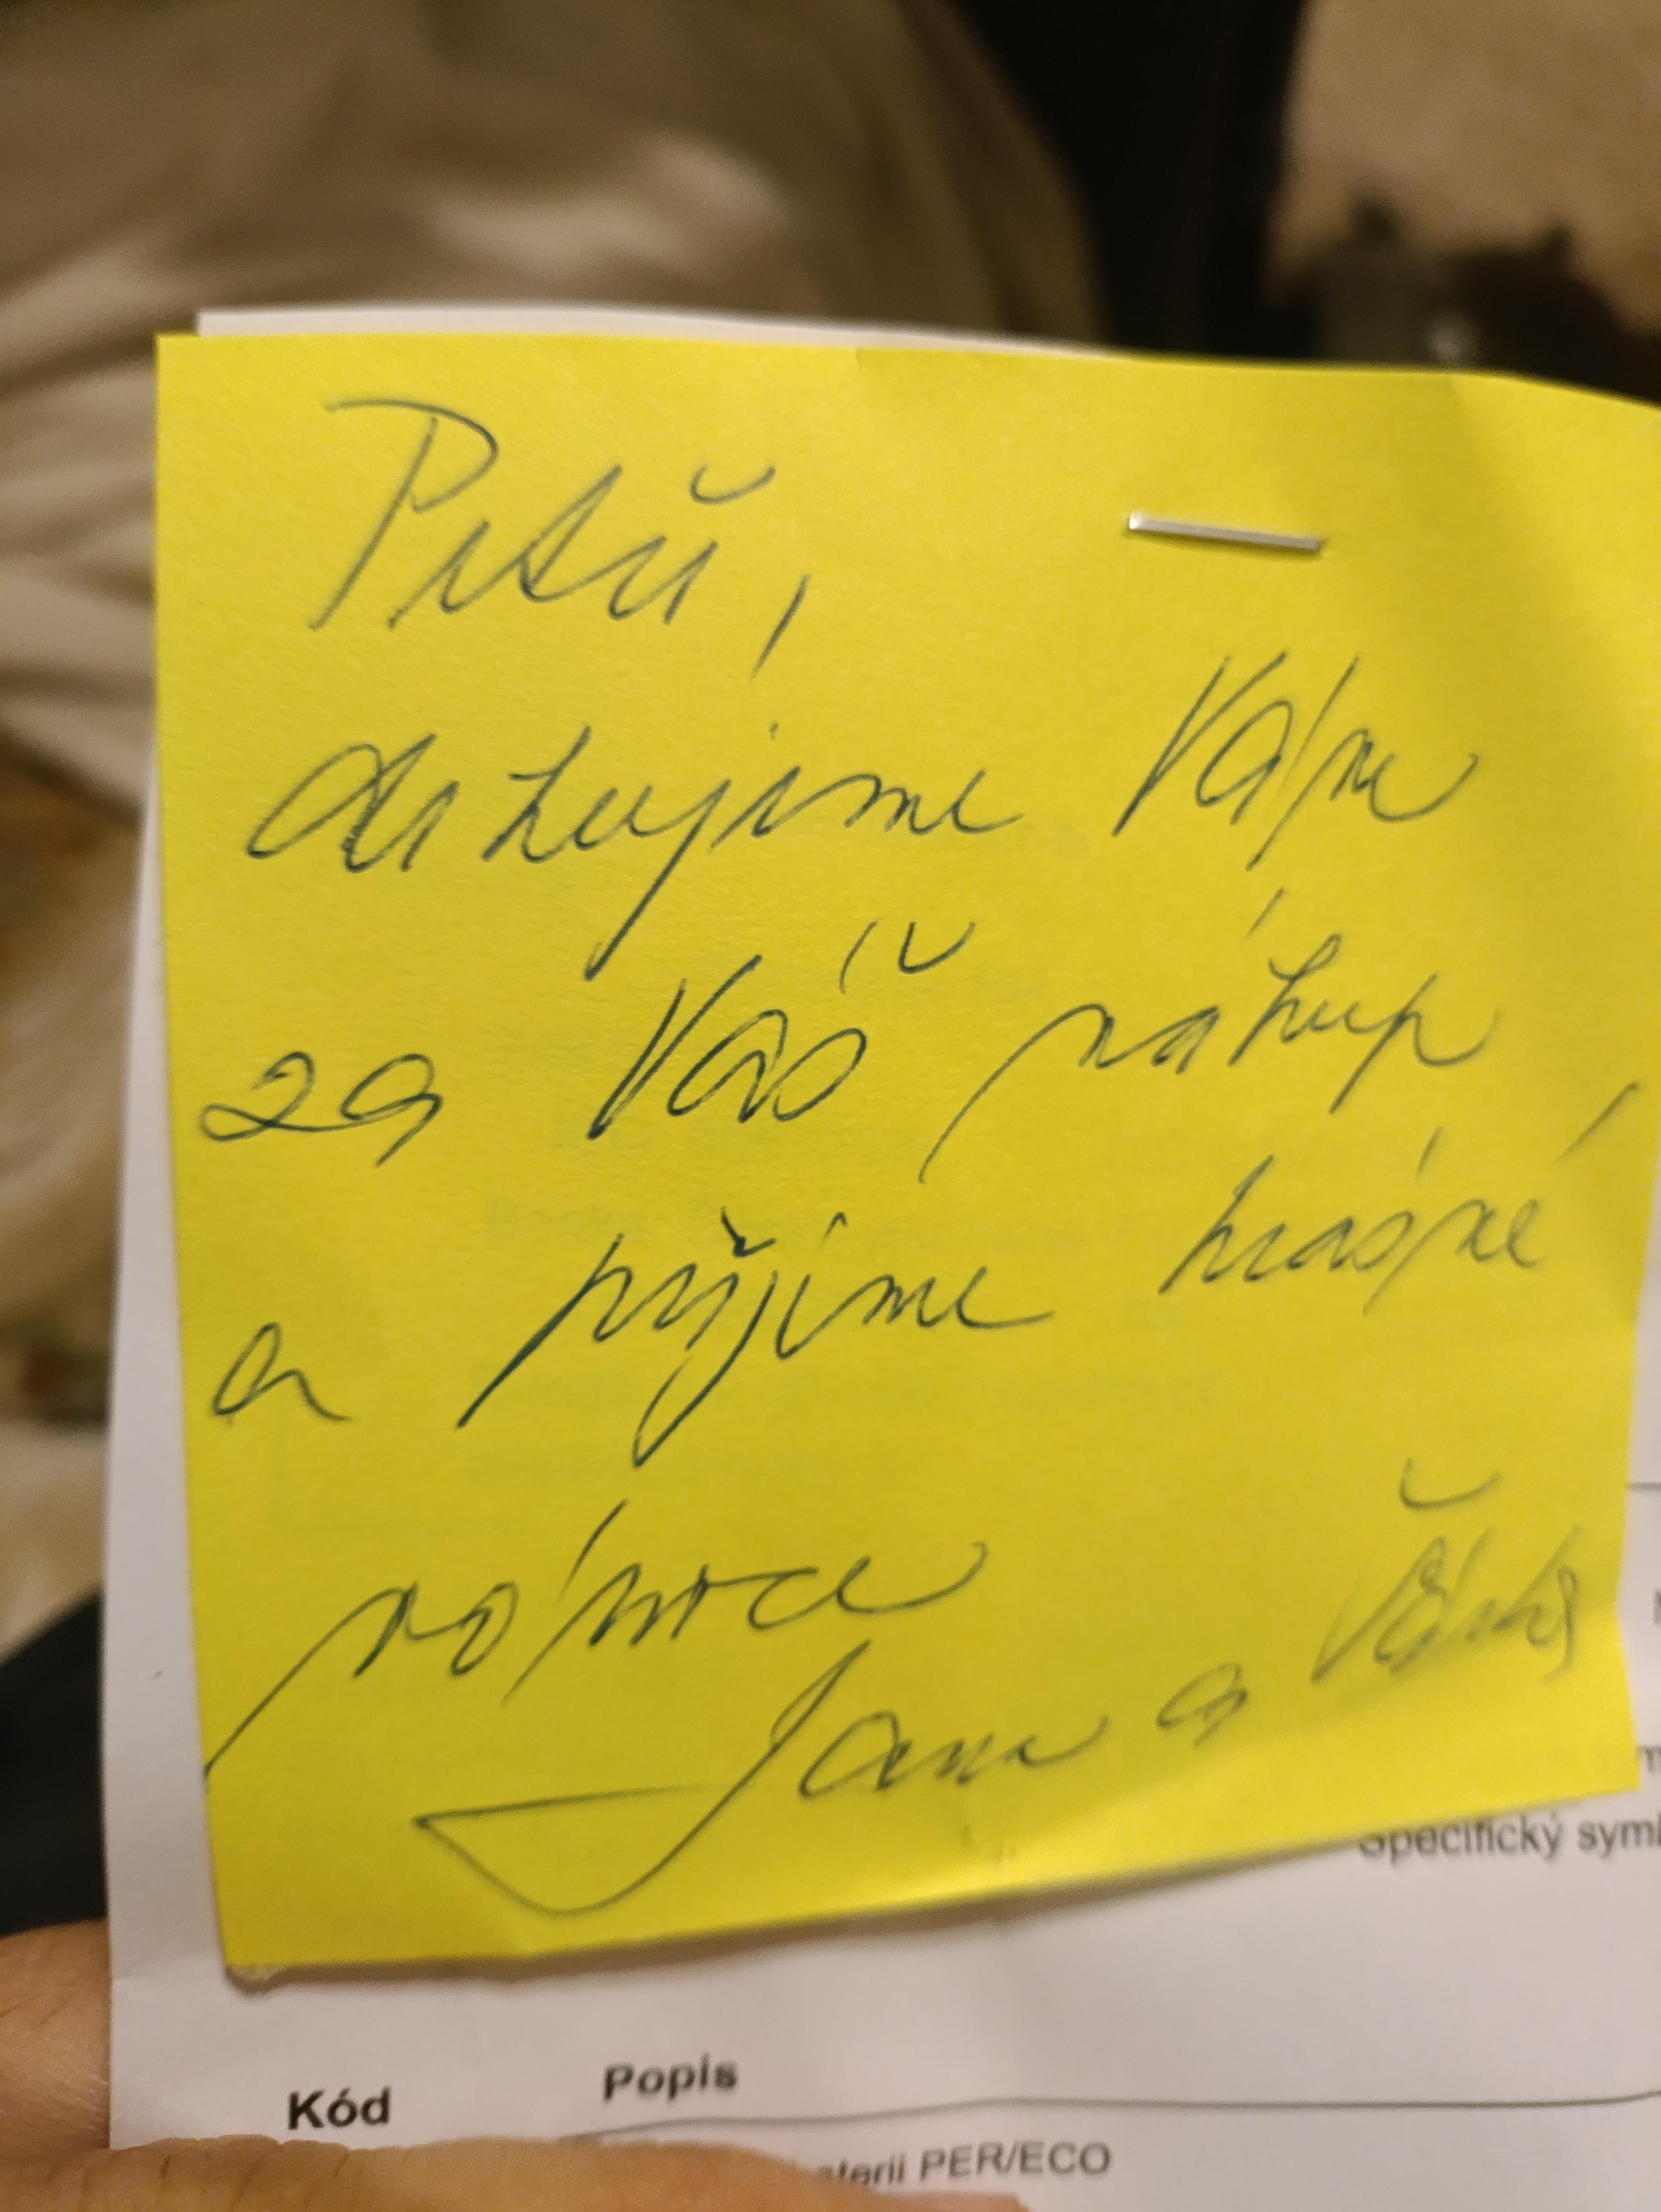 Petři,
děkujeme Vám
za Váš nákup,
a přejeme krásné
vánoce
Jana a
Specifický symb
Kód
Popis
baterii PER/ECO